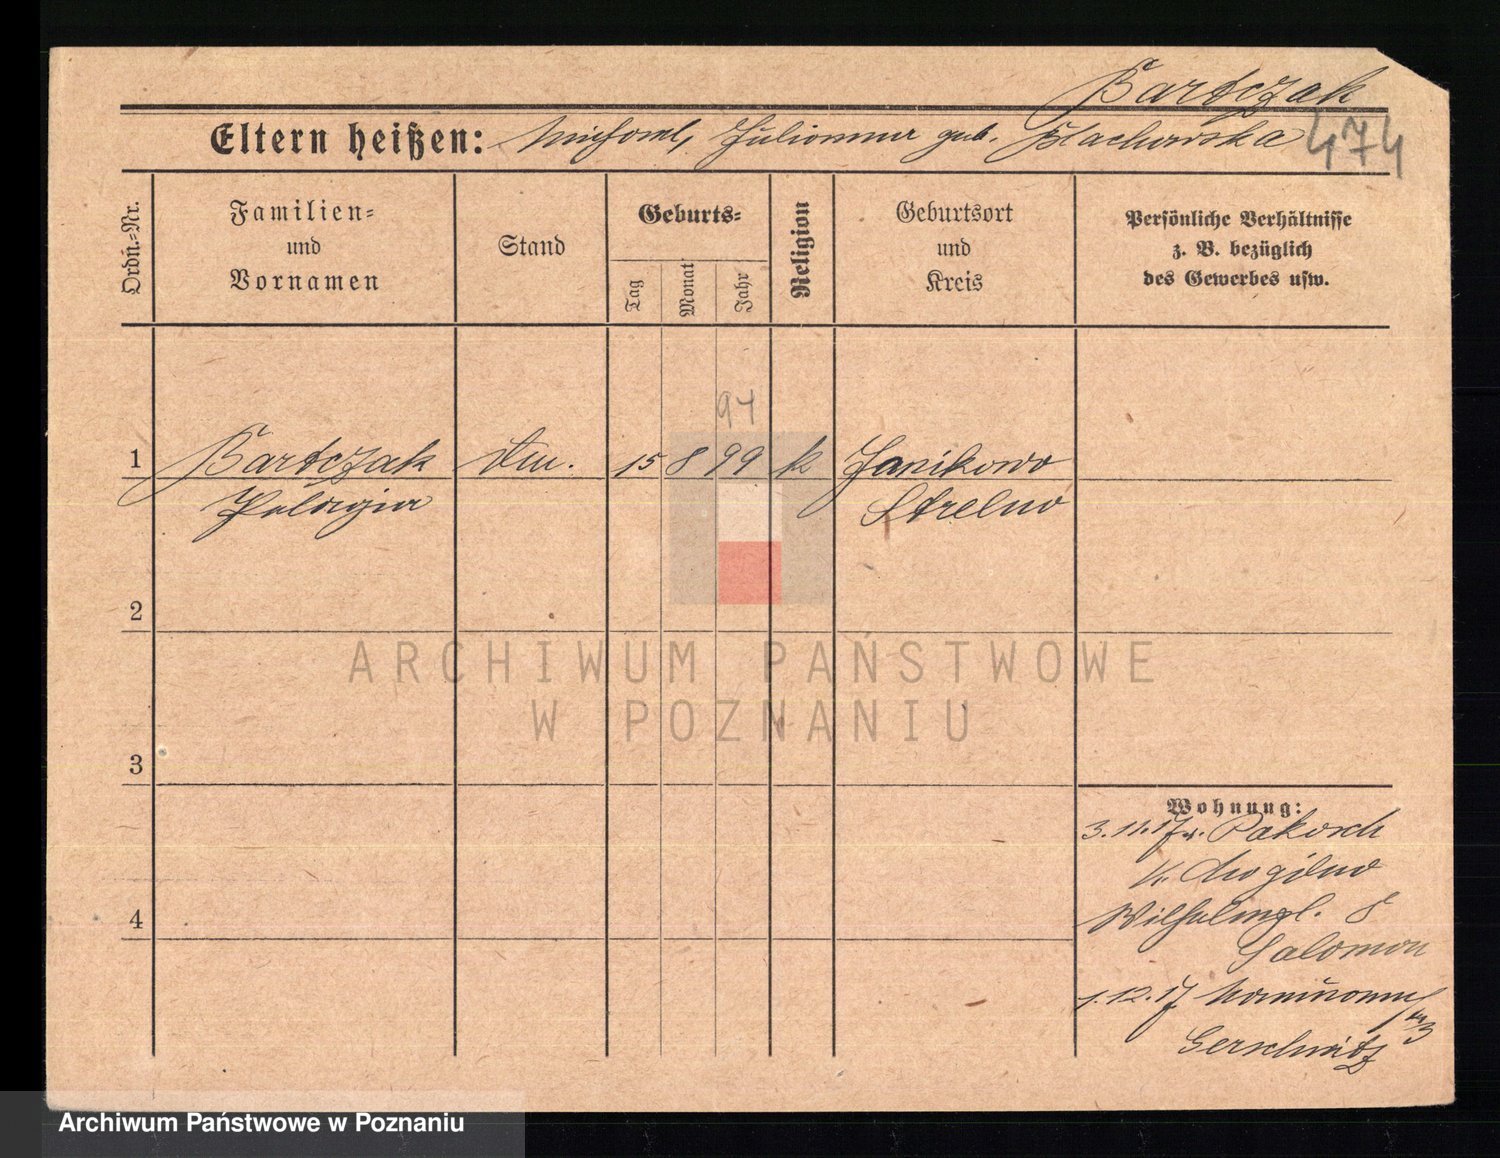 Bartczak
Eltern heißen: Michael, Julianna geb. Stachowska 474
Ordn.-Nr.
Familien-
und
Vornamen
Stand
Geburts-
Tag
Monat
Jahr
Religion
Geburtsort
und
Kreis
Persönliche Verhältnisse
z. B. bezüglich
des Gewerbes usw.
94
1 Bartczak 15 8 99 k Janikowo
Pelagia Strelno
2
ARCHIWUM PAŃSTWOWE
W POZNANIU
3
Wohnung:
3.11.17 v. Pakosch
Kr. Mogilno
Wilhelmpl. 8
Salomon
1.12.17
Gerschwitz
4
Archiwum Państwowe w Poznaniu